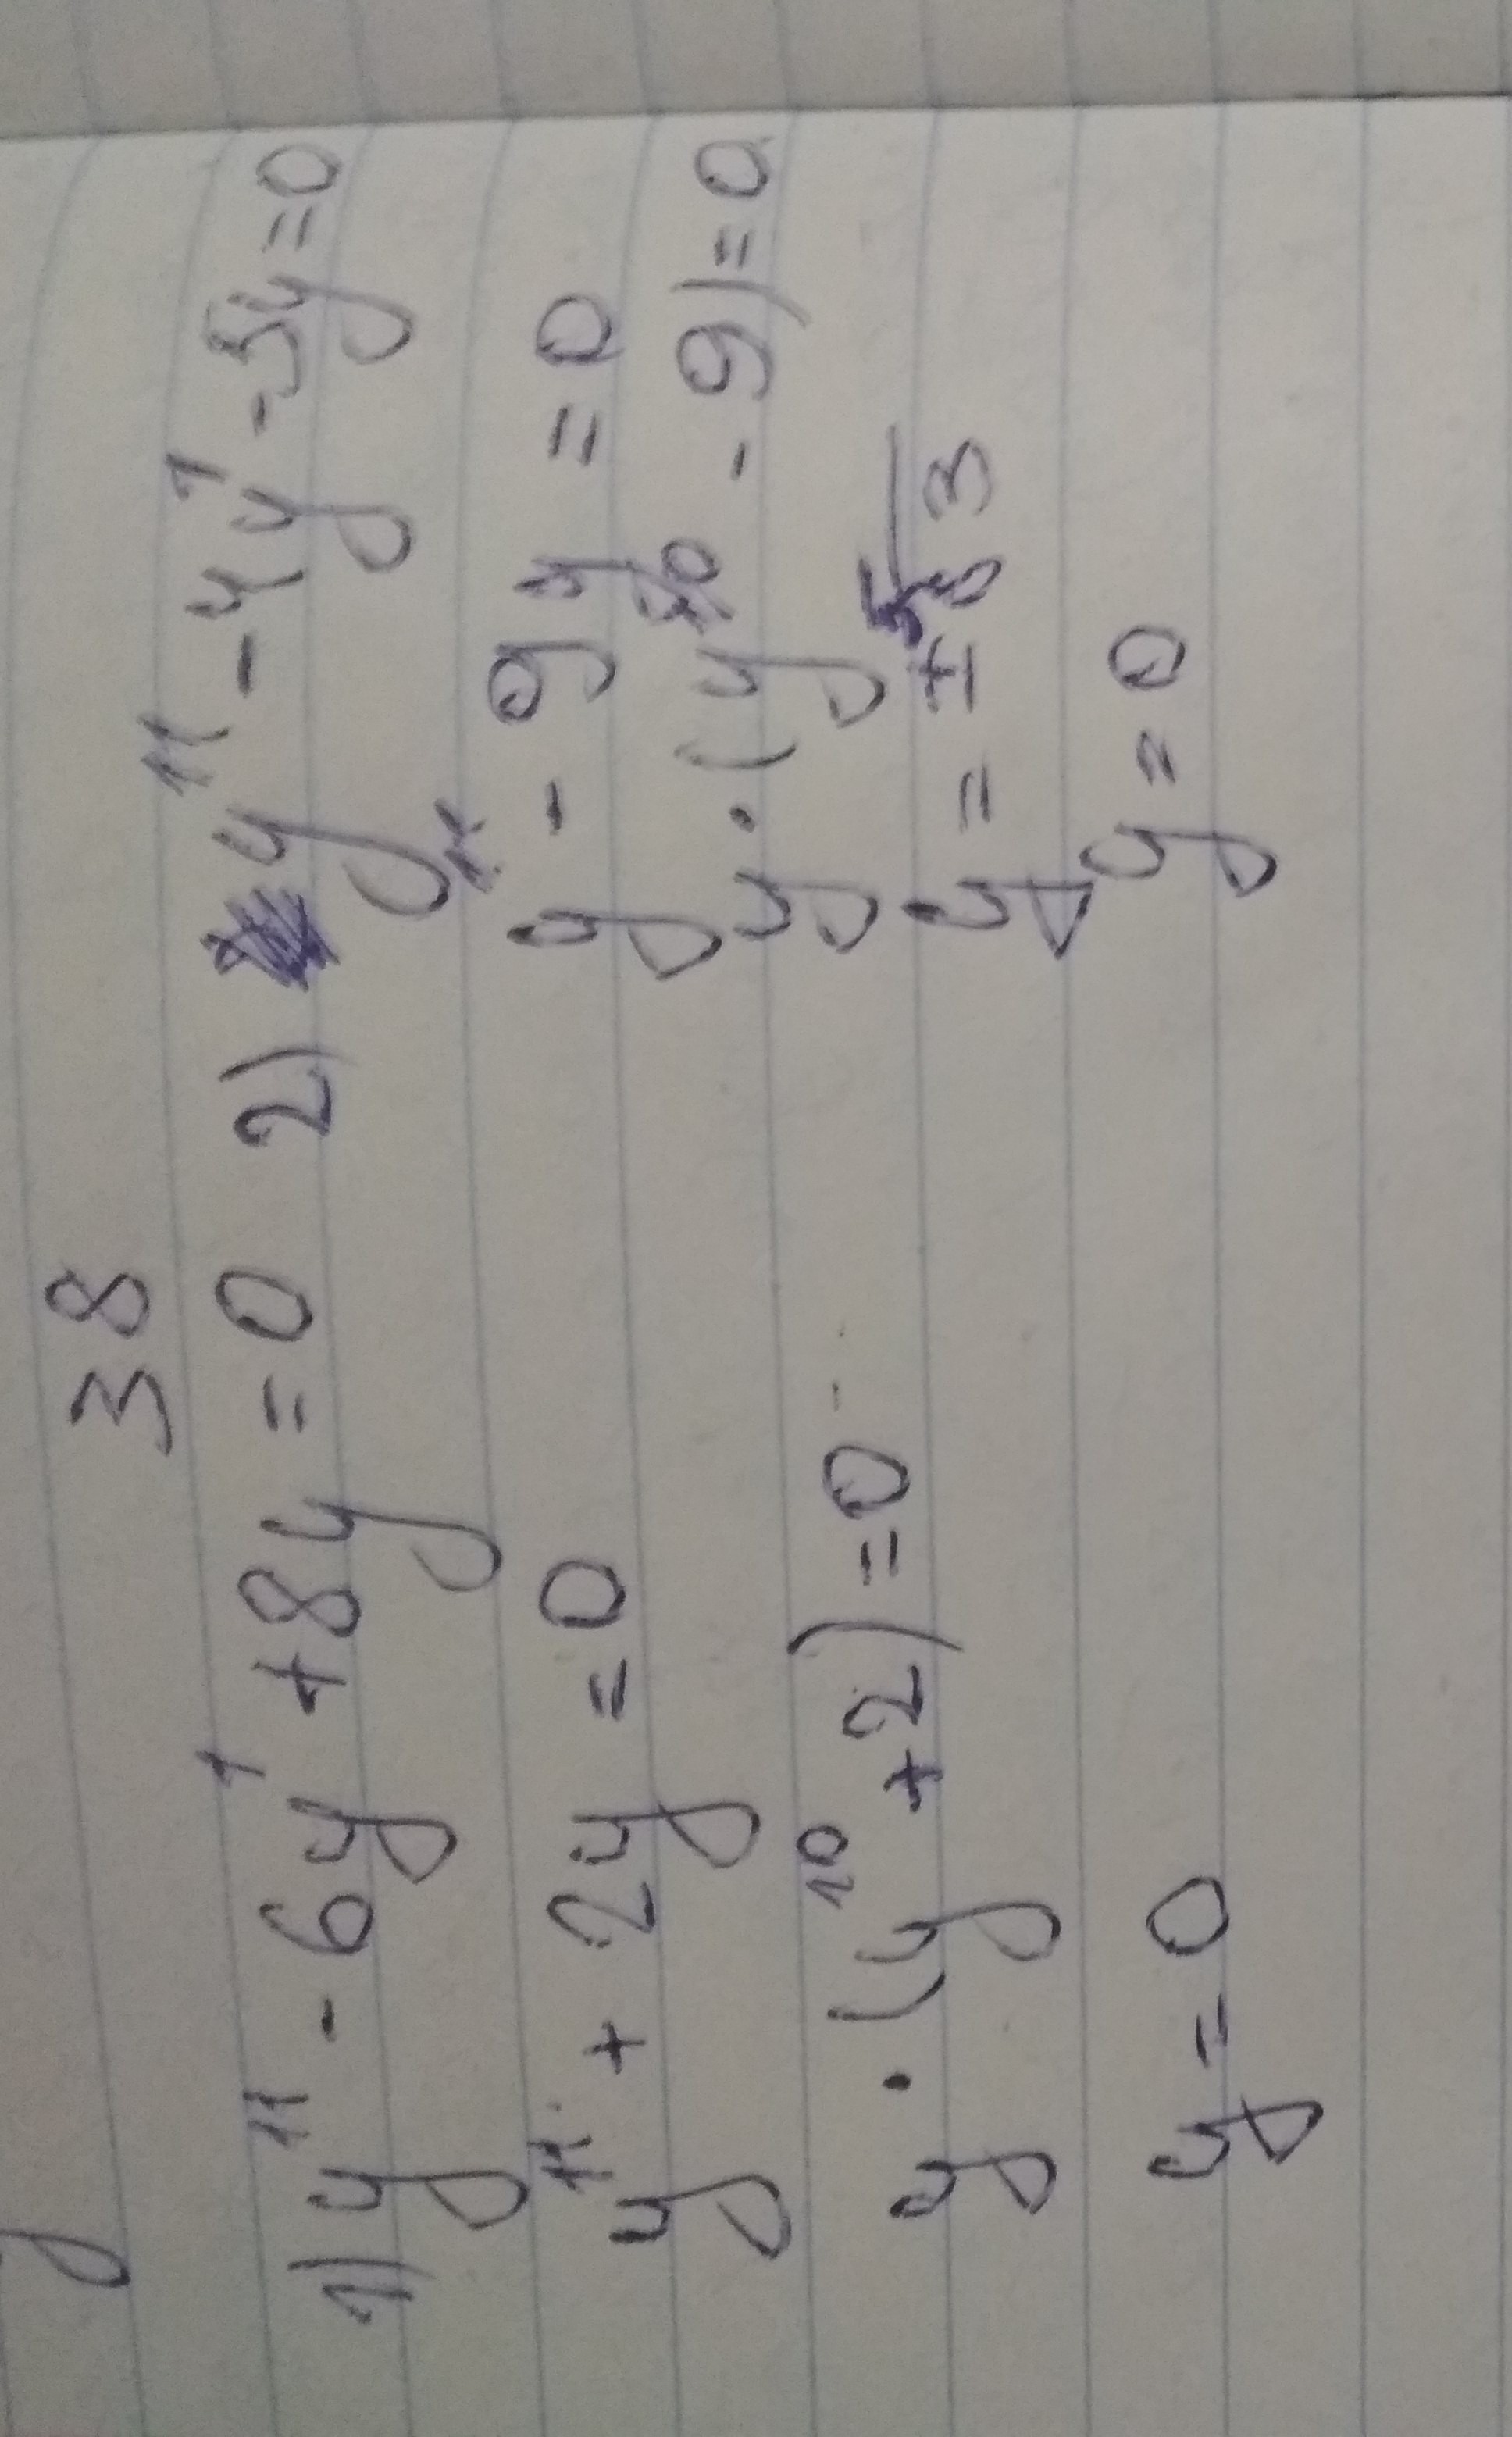 38
1) y¹¹ - 6y¹ + 8y = 0
y¹¹ + 2y = 0
y · (y¹⁰ + 2) = 0
y = 0
2) y¹¹ - 4y¹ - 5y = 0
y¹¹ - 9y = 0
y · (y¹⁰ - 9) = 0
y = ± ⁵√3
y = 0